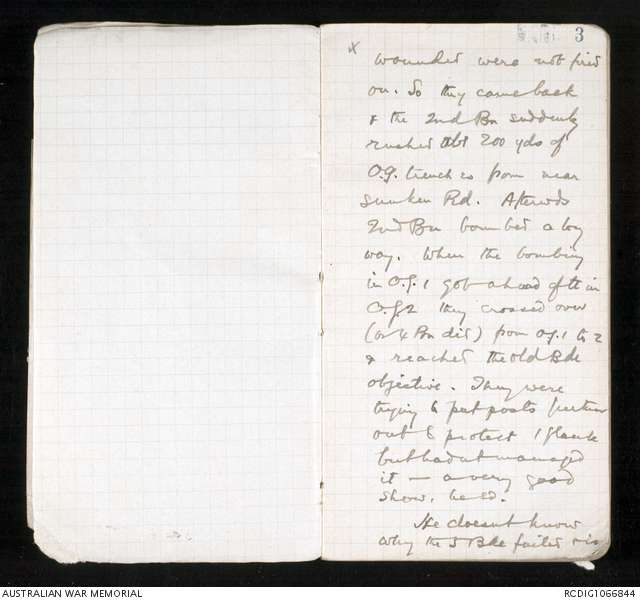 3
x wounded were not fired
on. So they came back
& the 2nd Bn suddenly
rushed abt 200 yds of
O.G. trenches from near
Sunken Rd. Afterwds
2nd Bn bombed a long
way. When the bombing
in O.G.1 got ahead of tt in
O.G.2 they crossed over
(or 4 Bn did) from O.G.1 to 2
& reached the old Bde
objective. They were
trying to put posts further
out to protect / flank
but hadnt managed
it - a very good
show, he sd.
He doesnt know
why the 5 Bde failed
AUSTRALIAN WAR MEMORIAL
RCDIG1066844